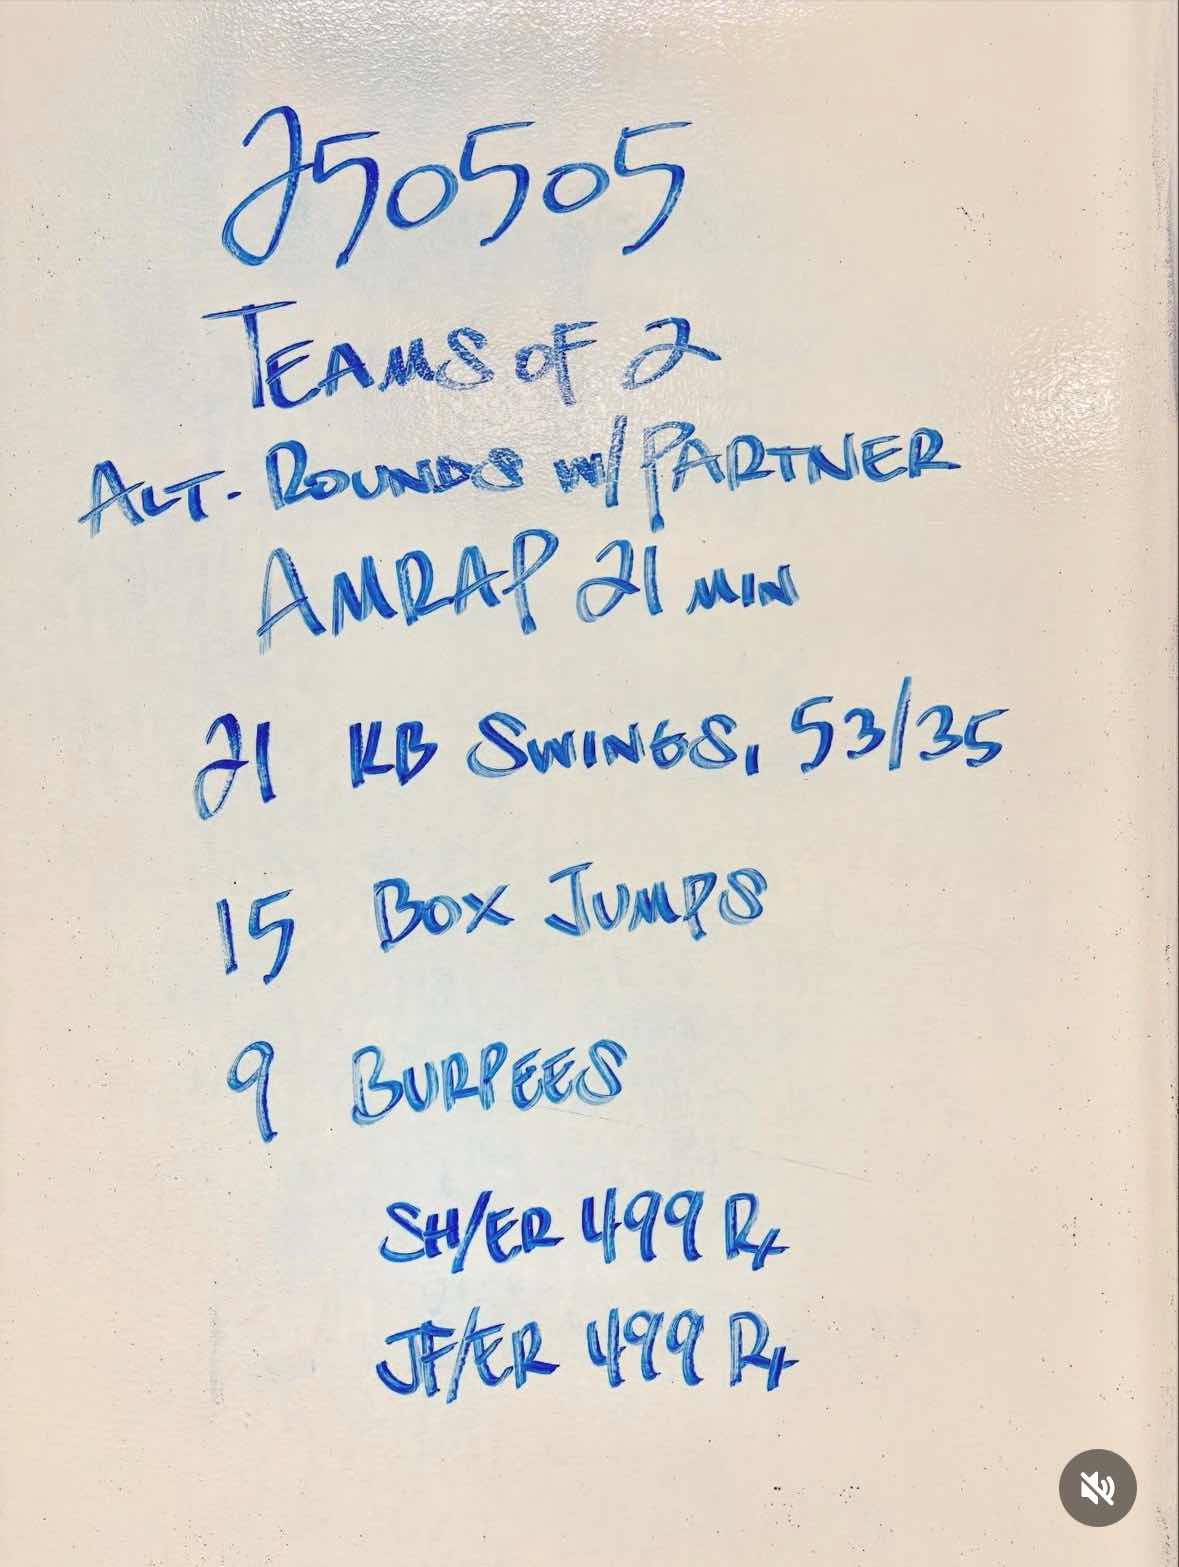 250505
TEAMS OF 2
ALT. ROUNDS W/ PARTNER
AMRAP 21 MIN
21 KB SWINGS, 53/35
15 BOX JUMPS
9 BURPEES
SH/ER 499 Rx
JF/ER 499 Rx